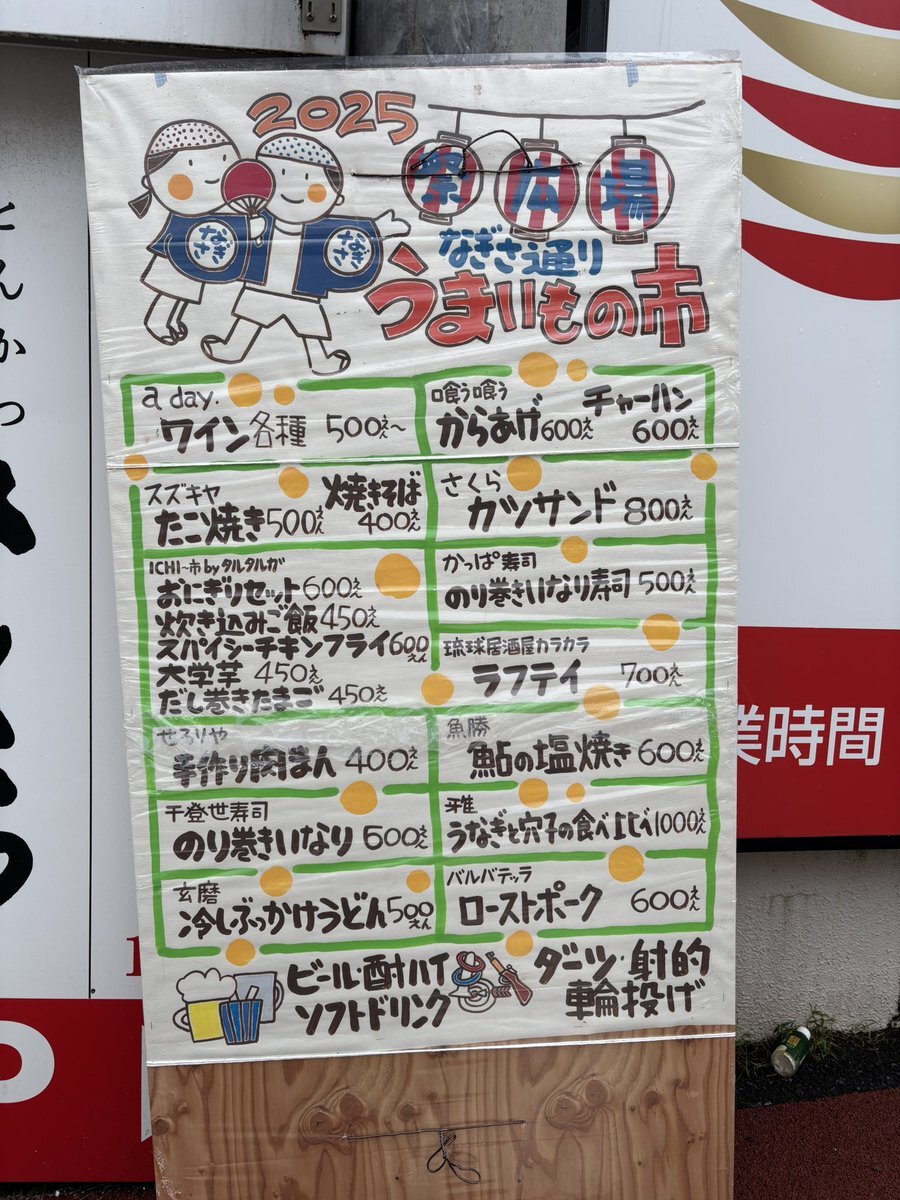 2025
祭広場
なぎさ
なぎさ
なぎさ通り
うまいもの市
a day.
ワイン各種 500えん〜
喰う喰う
からあげ600えん
チャーハン
600えん
スズキヤ
たこ焼き500えん
焼きそば
400えん
さくら
カツサンド 800えん
ICHI〜市 by タルタルガ
おにぎりセット600えん
炊き込みご飯450えん
スパイシーチキンフライ600えん
大学芋 450えん
だし巻きたまご 450えん
かっぱ寿司
のり巻きいなり寿司 500えん
琉球居酒屋カラカラ
ラフテイ 700えん
せろりや
手作り肉まん 400えん
魚勝
鮎の塩焼き 600えん
千登世寿司
のり巻きいなり 600えん
雅
うなぎと穴子の食べ比べ1000えん
玄磨
冷しぶっかけうどん500えん
バルバテッラ
ローストポーク 600えん
ビール・酎ハイ
ソフトドリンク
ダーツ・射的
輪投げ
とんかつ
業時間